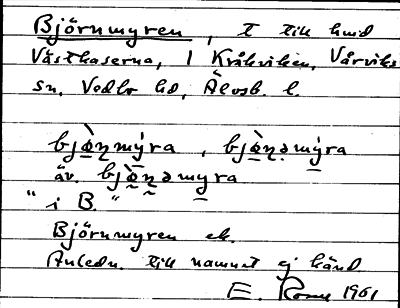 Björnmyren, t till hmd
Västkaserna, 1 Kråkviken, Vårviks
sn, Vedbo hd, Älvsb. l.
bjø̀ṇmýra, bjø̀ṇəmýra
äv. bjø̀ṇəmyra
"i B."
Björnmyren ek.
Anledn. till namnet ej känd
E. 1961